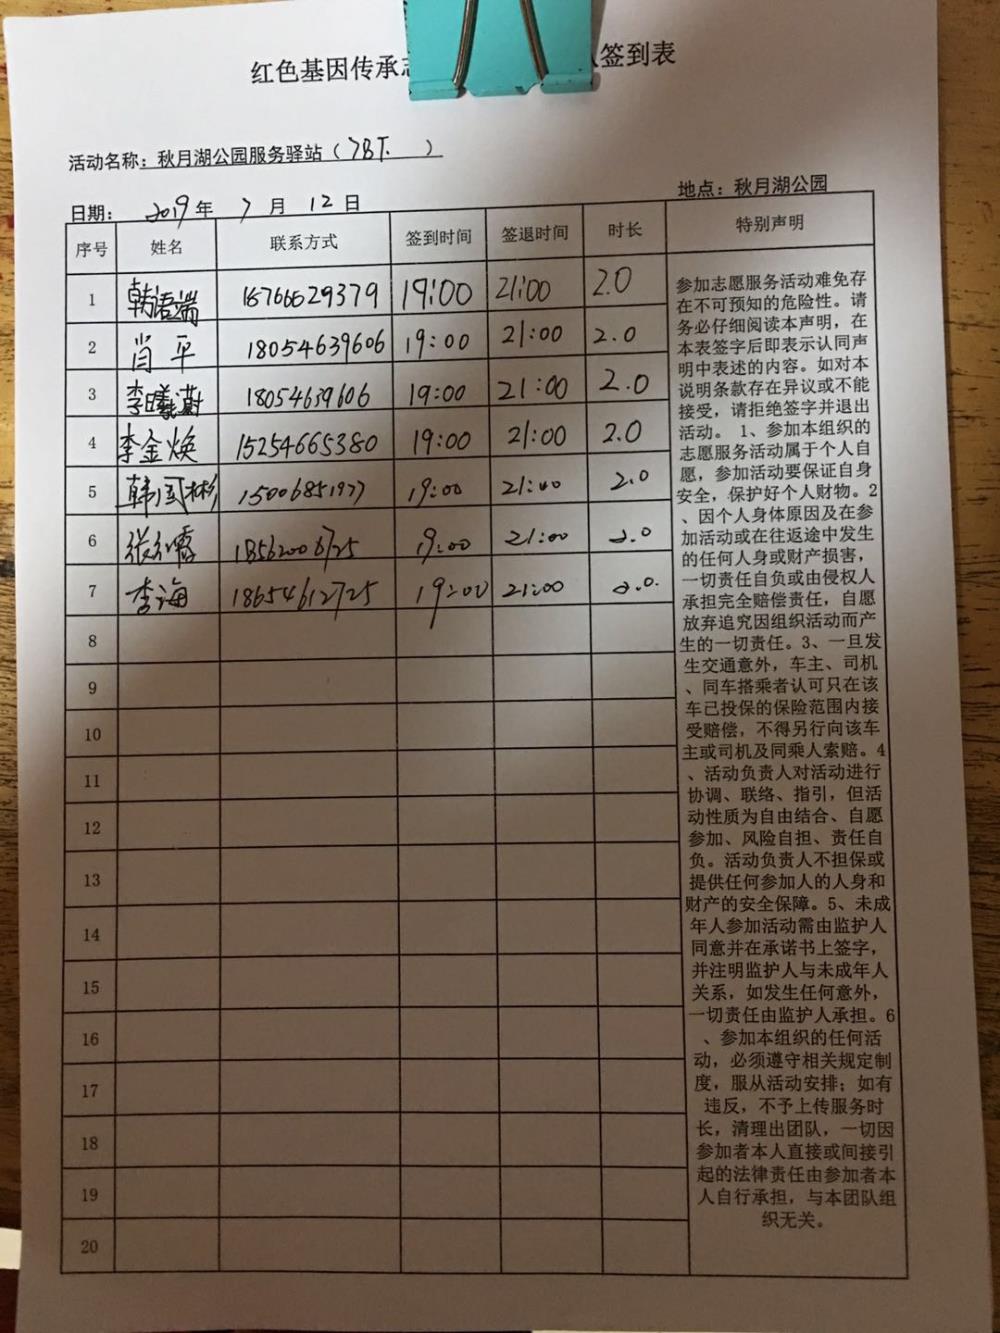 红色基因传承志 签到表
活动名称：秋月湖公园服务驿站（ ）
日期： 2019 年 7 月 12 日
地点：秋月湖公园
序号 姓名 联系方式 签到时间 签退时间 时长 特别声明
1 韩语端 18766629379 19:00 21:00 2.0
2 肖平 18054639606 19:00 21:00 2.0
3 李曦蔚 18054639606 19:00 21:00 2.0
4 李金焕 15254665380 19:00 21:00 2.0
5 韩国彬 15006851977 19:00 21:00 2.0
6 18562006725 19:00 21:00 2.0
7 李海 18654612725 19:00 21:00 2.0.
8
9
10
11
12
13
14
15
16
17
18
19
20
参加志愿服务活动难免存
在不可预知的危险性。请
务必仔细阅读本声明，在
本表签字后即表示认同声
明中表述的内容。如对本
说明条款存在异议或不能
接受，请拒绝签字并退出
活动。 1、参加本组织的
志愿服务活动属于个人自
愿，参加活动要保证自身
安全，保护好个人财物。2
、因个人身体原因及在参
加活动或在往返途中发生
的任何人身或财产损害，
一切责任自负或由侵权人
承担完全赔偿责任，自愿
放弃追究因组织活动而产
生的一切责任。3、一旦发
生交通意外，车主、司机
、同车搭乘者认可只在该
车已投保的保险范围内接
受赔偿，不得另行向该车
主或司机及同乘人索赔。4
、活动负责人对活动进行
协调、联络、指引，但活
动性质为自由结合、自愿
参加、风险自担、责任自
负。活动负责人不担保或
提供任何参加人的人身和
财产的安全保障。5、未成
年人参加活动需由监护人
同意并在承诺书上签字，
并注明监护人与未成年人
关系，如发生任何意外，
一切责任由监护人承担。6
、参加本组织的任何活
动，必须遵守相关规定制
度，服从活动安排；如有
违反，不予上传服务时
长，清理出团队，一切因
参加者本人直接或间接引
起的法律责任由参加者本
人自行承担，与本团队组
织无关。